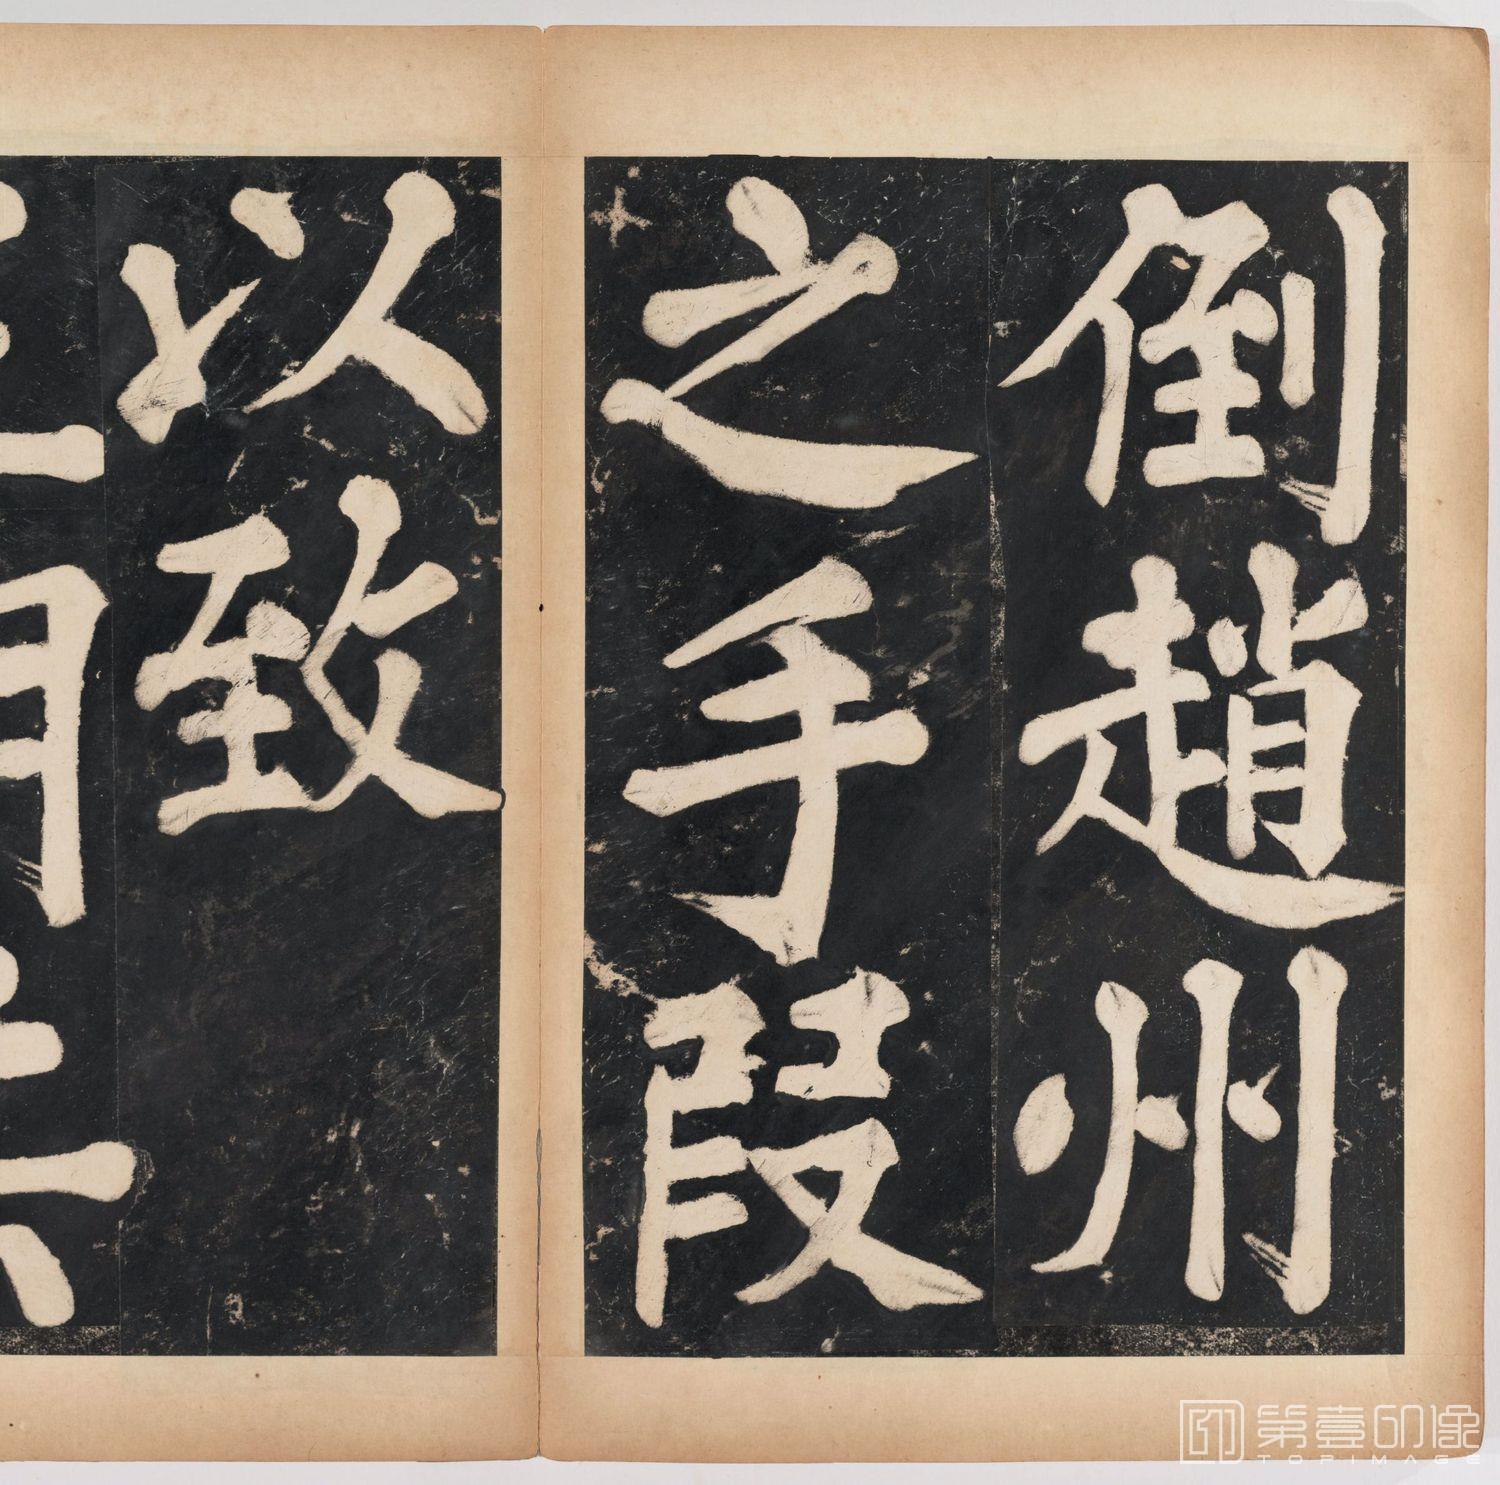 倒趙州
之手段
以致
第壹印像
TOPIMAGE